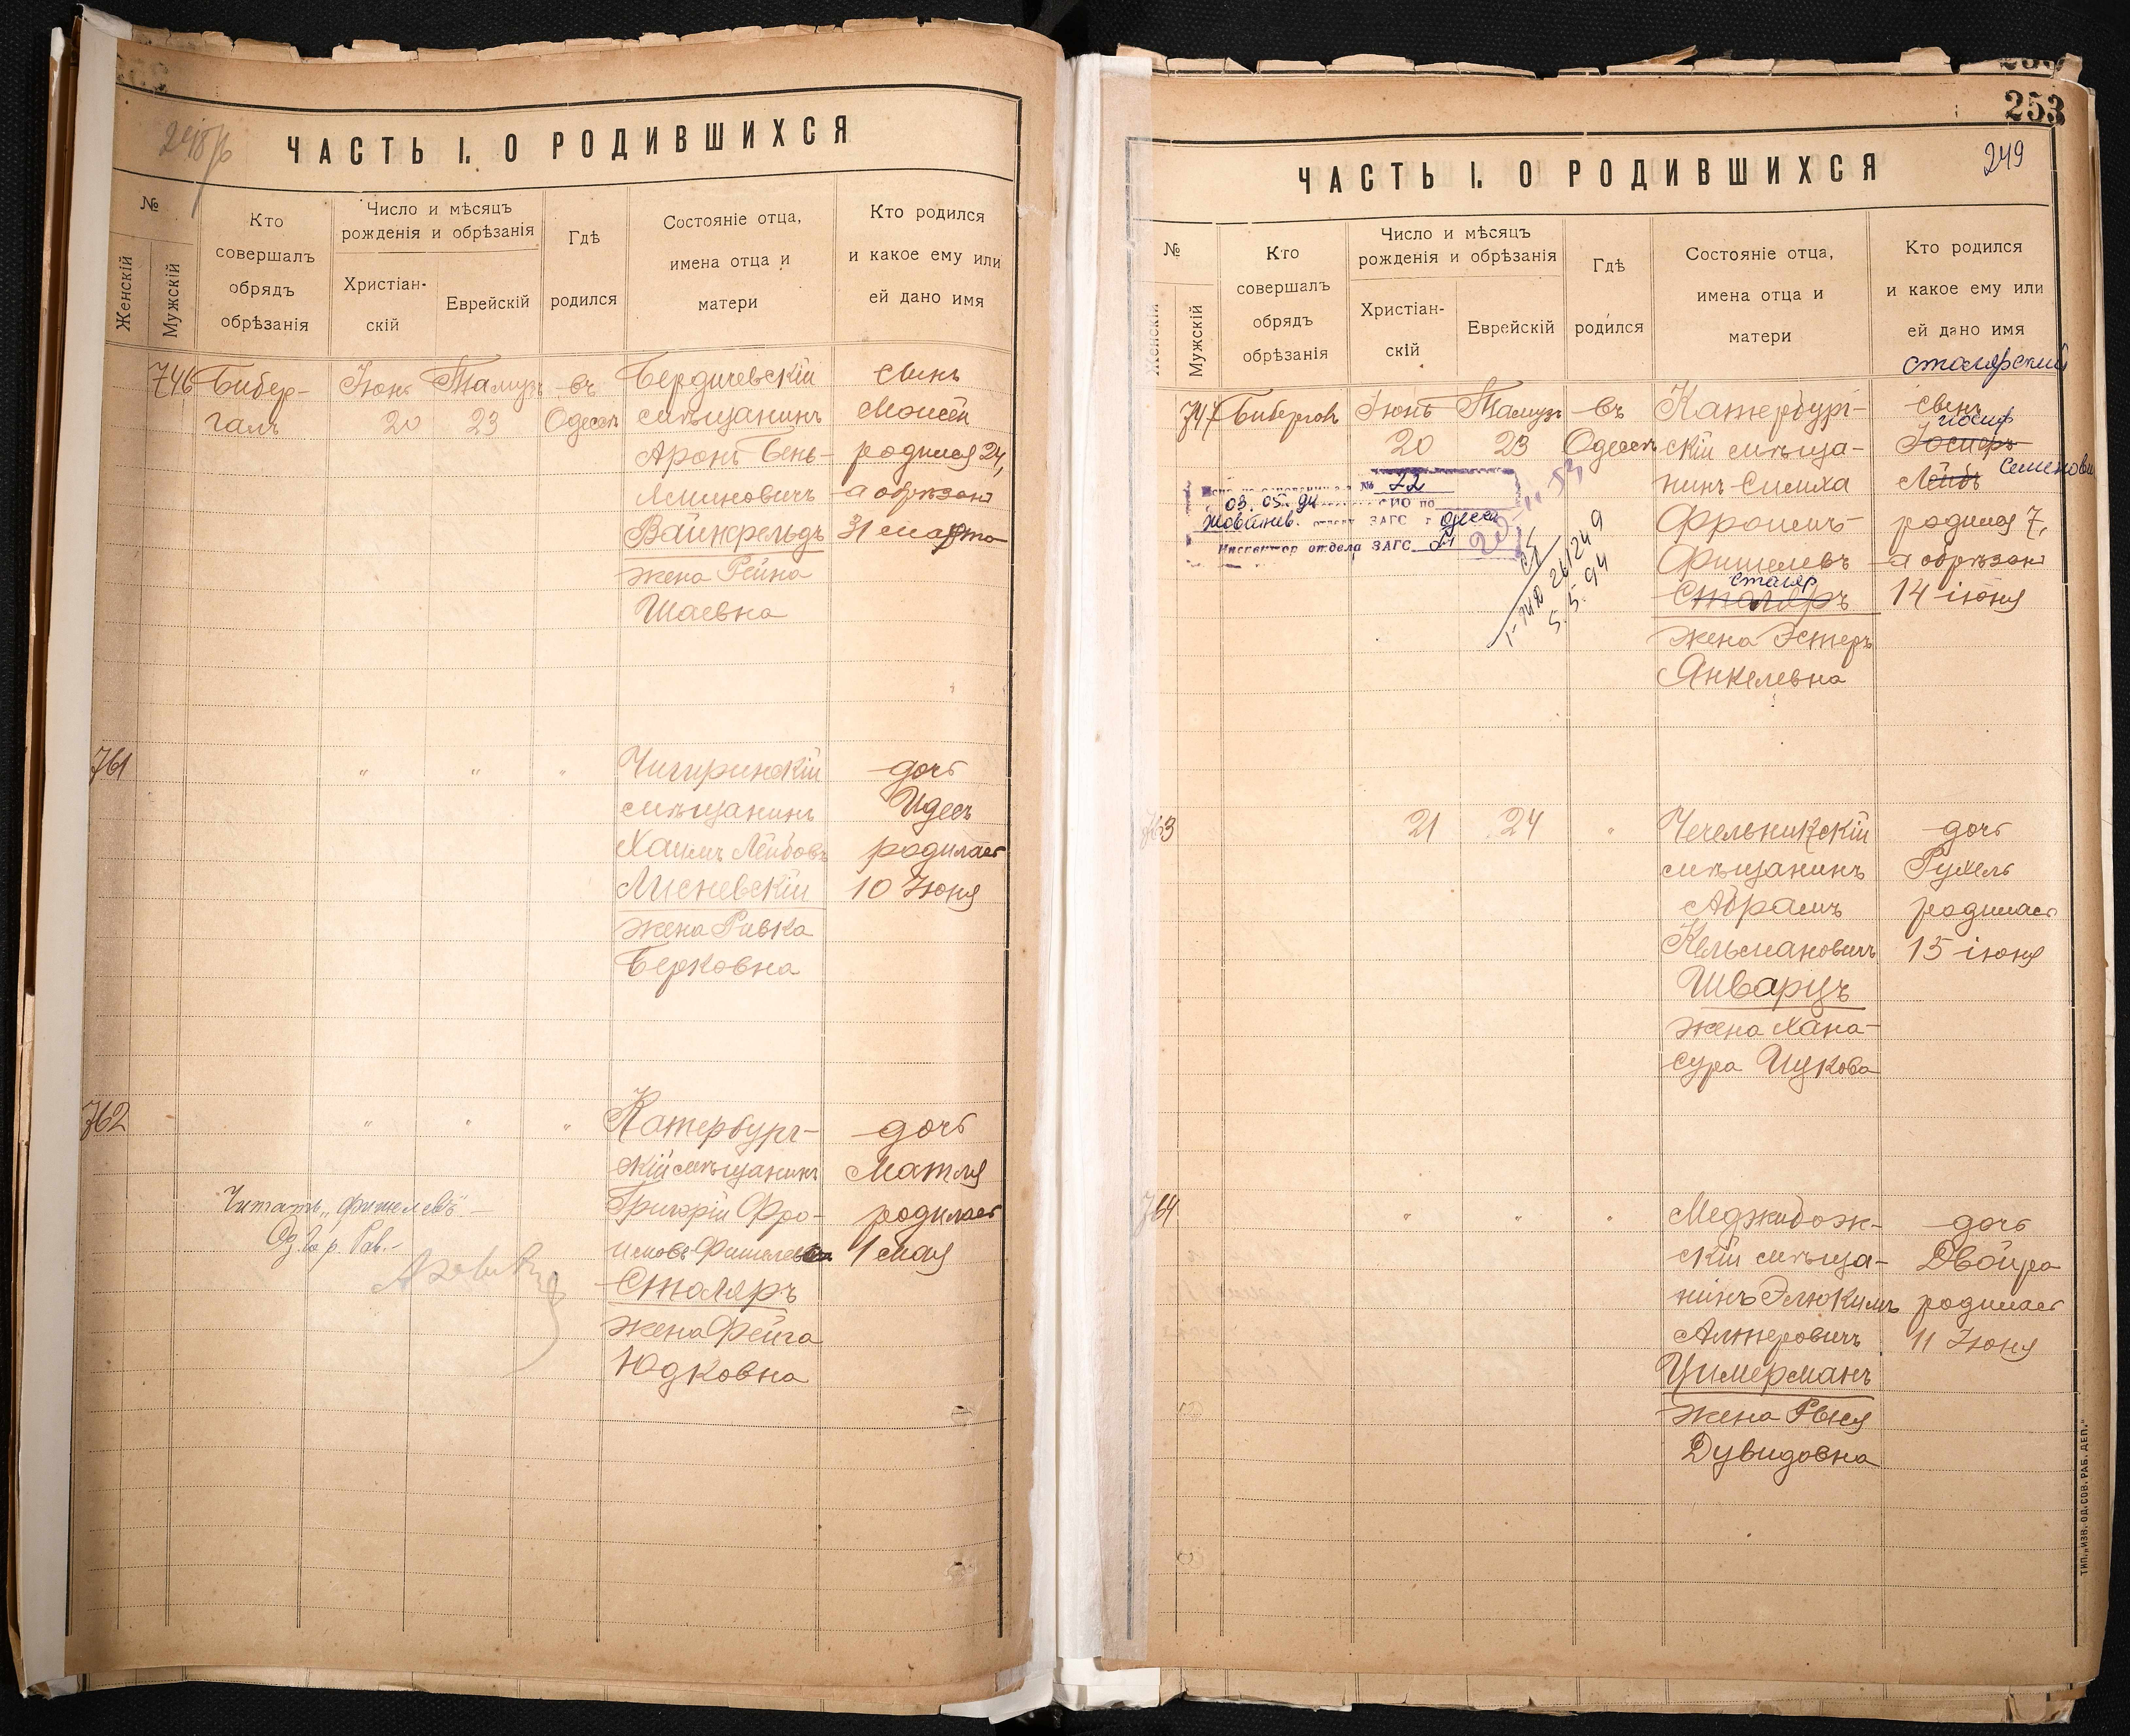 248/б
ЧАСТЬ I. О РОДИВШИХСЯ
№
Женскій
Мужскій
Кто
совершалъ
обрядъ
обрѣзанія
Число и мѣсяцъ
рожденія и обрѣзанія
Христіан-
скій
Еврейскій
Гдѣ
родился
Состояніе отца,
имена отца и
матери
Кто родился
и какое ему или
ей дано имя
746 Бибер- Іюнь Тамузъ въ Бердичевскій сынъ
галъ 20 23 Одессѣ мѣщанинъ Моисей
Аронъ Бень- родился 24,
яминовичъ а обрѣзанъ
Вайнфельдъ 31 марта
жена Рейна
Шаевна
761 " " " Чигиринскій дочь
мѣщанинъ Идесъ
Хаимъ Лейбовъ родилась
Лисневскій 10 Іюня
жена Ривка
Берковна
762 " " " Катербург- дочь
скій мѣщанинъ Матля
Читать „Фишелевъ" — Григорій Фро- родилась
Од. Гор. Рав. имовъ Фишелев 1 мая
Столяръ
жена Фейга
Юдковна
253
249
ЧАСТЬ I. О РОДИВШИХСЯ
№
Женскій
Мужскій
Кто
совершалъ
обрядъ
обрѣзанія
Число и мѣсяцъ
рожденія и обрѣзанія
Христіан-
скій
Еврейскій
Гдѣ
родился
Состояніе отца,
имена отца и
матери
Кто родился
и какое ему или
ей дано имя
столярский
747 Бибергалъ Іюнь Тамузъ въ Катербург- сынъ
иосиф
20 23 Одессѣ скій мѣща- Іосифъ
Семенович
нинъ Симха Лейбъ
№ 22
03. 05. 94 по
Жовтнев. отдел ЗАГС г. Одесса
Инспектор отдела ЗАГС
5.5.94
Фроимъ- родился 7,
Фишелевъ а обрѣзанъ
столяр
Столяръ 14 іюня
жена Эстеръ
Янкелевна
763 21 24 " Чечельникскій дочь
мѣщанинъ Рухель
Абрамъ родилась
Кельмановичъ 15 іюня
Шварцъ
жена Хана-
Сура Ицкова
764 " " " Меджибож- дочь
скій мѣща- Двойра
нинъ Элюкимъ родилась
Алтеровичъ 11 Іюня
Цимерманъ
жена Рыся
Дувидовна
ТИП. „ИЗВ. ОД. СОВ. РАБ. ДЕП."